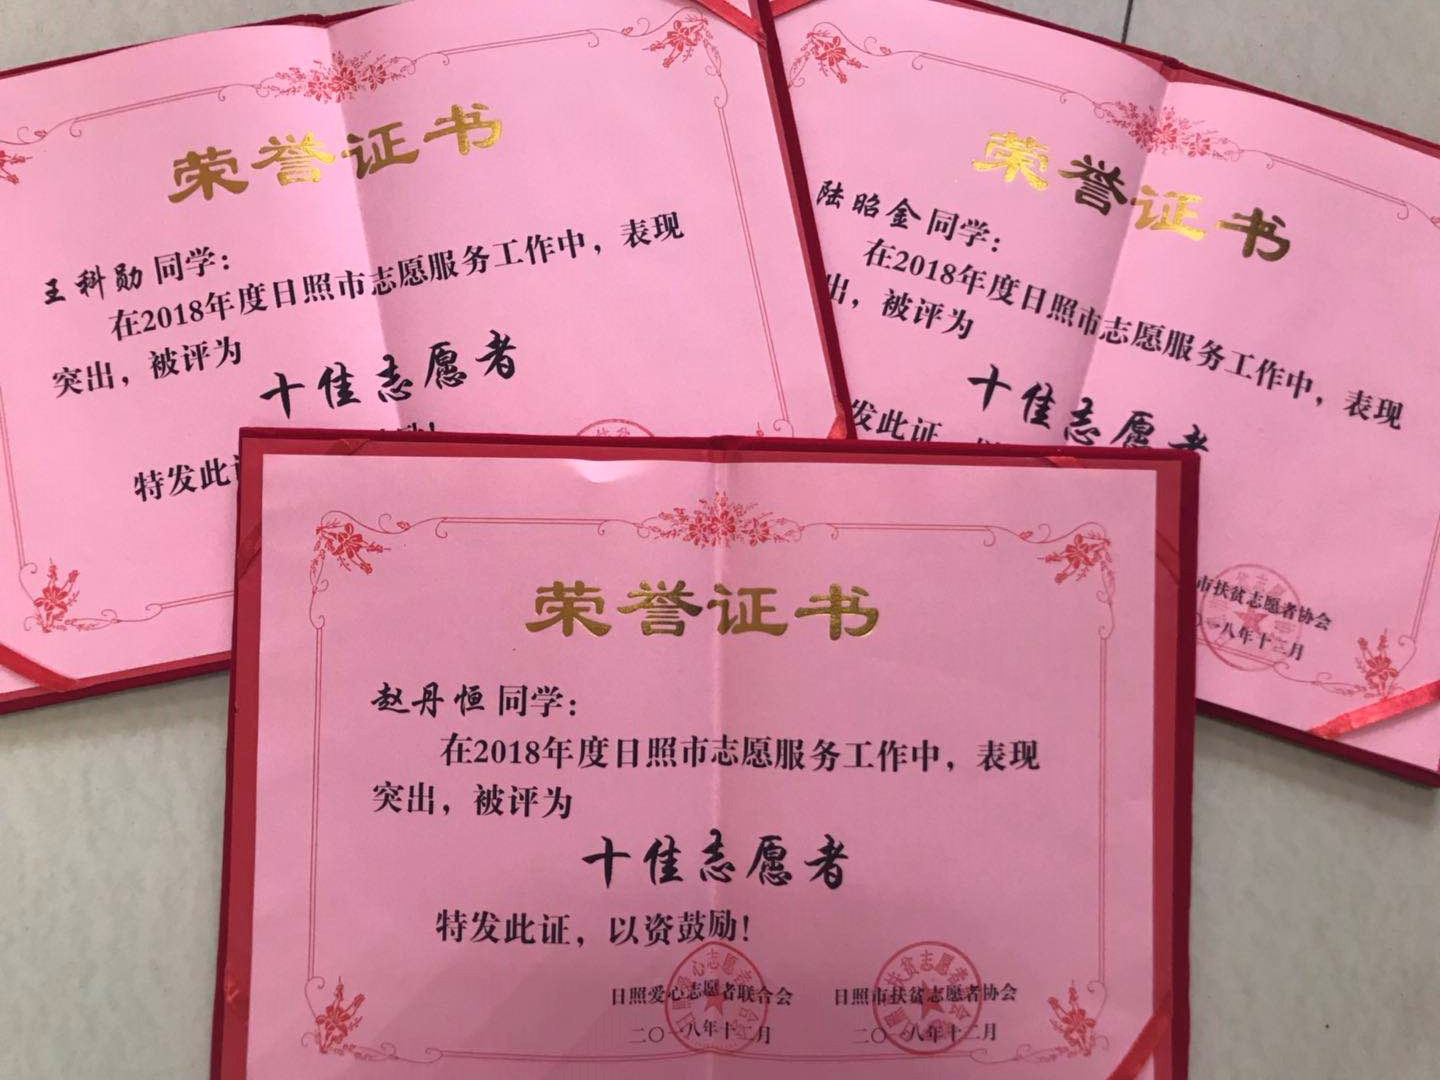 荣誉证书
王科勋 同学：
在2018年度日照市志愿服务工作中，表现
突出，被评为
十佳志愿者
特发此
荣誉证书
陆昭金 同学：
在2018年度日照市志愿服务工作中，表现
出，被评为
十佳志愿者
发此证
市扶贫志愿者协会
一八年十二月
荣誉证书
赵丹恒 同学：
在2018年度日照市志愿服务工作中，表现
突出，被评为
十佳志愿者
特发此证，以资鼓励！
日照爱心志愿者联合会 日照市扶贫志愿者协会
二〇一八年十二月 二〇一八年十二月